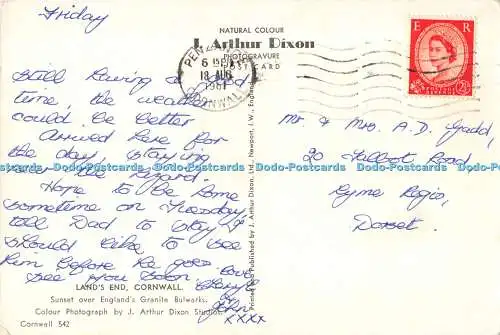 Friday
NATURAL COLOUR
J. Arthur Dixon
PHOTOGRAVURE
POSTCARD
E R
6 15 PM
18 AUG
1961
CORNWALL
Still having a good
time, the weather
could be better
Arrived here for
the day, staying
near the
Hope to be home
sometime on Tuesday,
tell Dad to stay I
should like to see
him before he goes.
See you soon. Love
John
xxxx
Mr & Mrs A.D. Gadd,
20 Talbot Road
Lyme Regis,
Dorset.
Printed and Published by J. Arthur Dixon Ltd., Newport, I.W., England
LAND'S END, CORNWALL.
Sunset over England's Granite Bulwarks.
Colour Photograph by J. Arthur Dixon Studios.
Cornwall 542
Dodo-Postcards Dodo-Postcards Dodo-Postcards Dodo-Postcards Dodo-Postcards